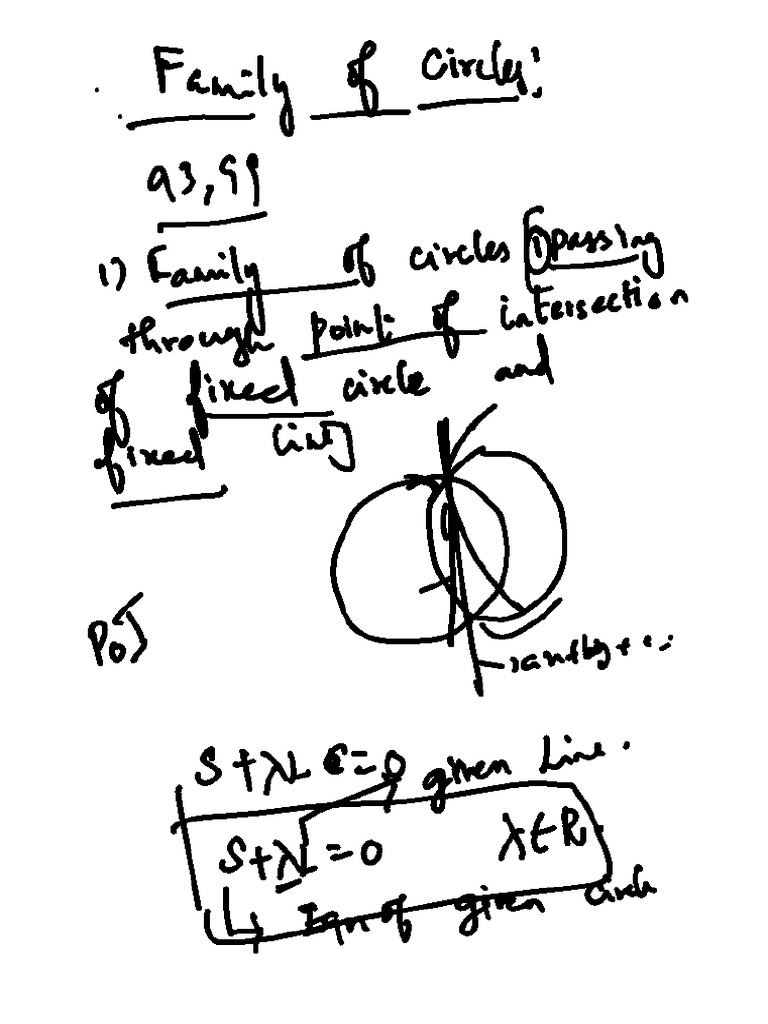 Family of Circles:
93, 99
1) Family of circles [① passing
through point of intersection
of fixed circle and
fixed line]
POI
S + λL = 0
given Line.
S + λL = 0 λ ∈ R
↳ Eqn of given circle